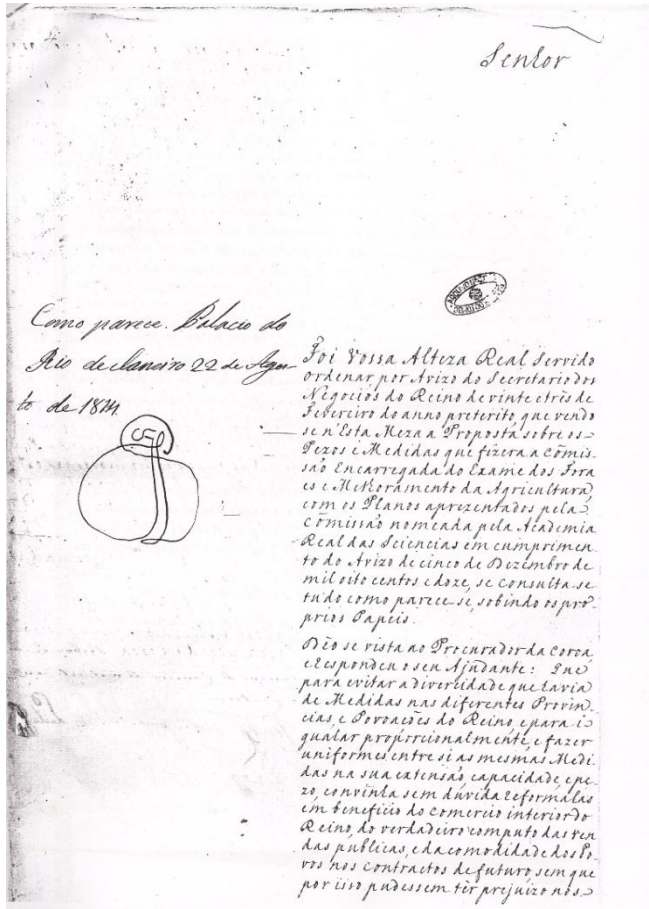 Senhor
Como parece. Palacio do
Rio de Janeiro 22 de Agos-
to de 1814
Foi Vossa Alteza Real servido
ordenar por Avizo do Secretario dos
Negocios do Reino de vinte e tres de
Fevereiro do anno preterito, que vendo
se n'Esta Meza a Proposta sobre os
Pezos e Medidas que fizera a Cõmis-
são Encarregada do Exame dos Fora
es e Melhoramento da Agricultura,
com os Planos aprezentados pela
Cõmissão nomeada pela Academia
Real das Sciencias em cumprimen
to do Avizo de cinco de Dezembro de
mil oito centos e doze, se consulta-se
tudo como parece-se, sobindo os pro-
prios Papeis.
Deo se vista ao Procurador da Coroa
e Respondeu o seu Ajudante: Que
para evitar a diversidade que havia
de Medidas nas diferentes Provin-
cias, e Povoações do Reino, e para i-
gualar proporcionalmente, e fazer
uniformes entre si as mesmas Medi
das na sua extensão, capacidade, e pe-
zo, convinha sem duvida reformalas
em beneficio do comercio interior do
Reino, do verdadeiro computo das ren
das publicas, e da comodidade dos Po-
vos nos contractos de futuro, sem que
por isso pudessem ter prejuizo nos